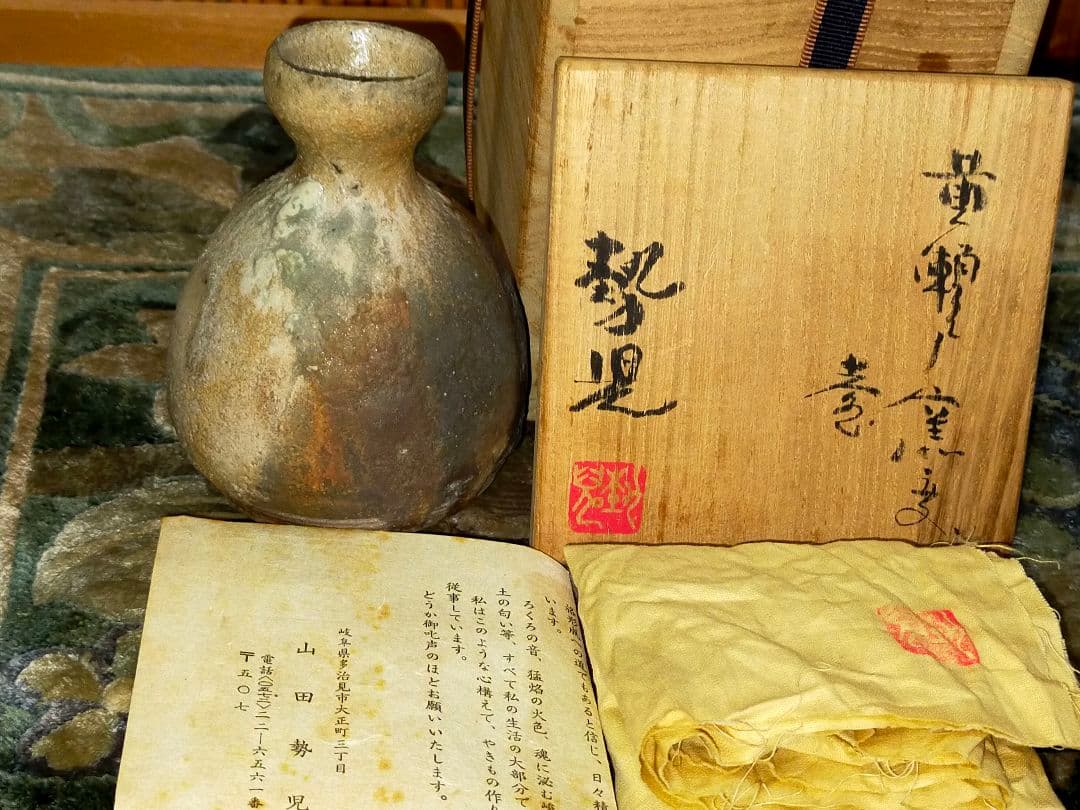 黄瀬戸窯変
壷
勢児
への道でもあると信じ、日々精
います。
ろくろの音、猛焰の火色、魂に泌む
土の匂い等、すべて私の生活の大部分で
私はこのような心構えて、やきもの作り
従事しています。
どうか御叱声のほどお願いいたします。
岐阜県多治見市大正町三丁目
山田勢児
電話〈〇五七二〉二二―六五六一番
〒五〇七